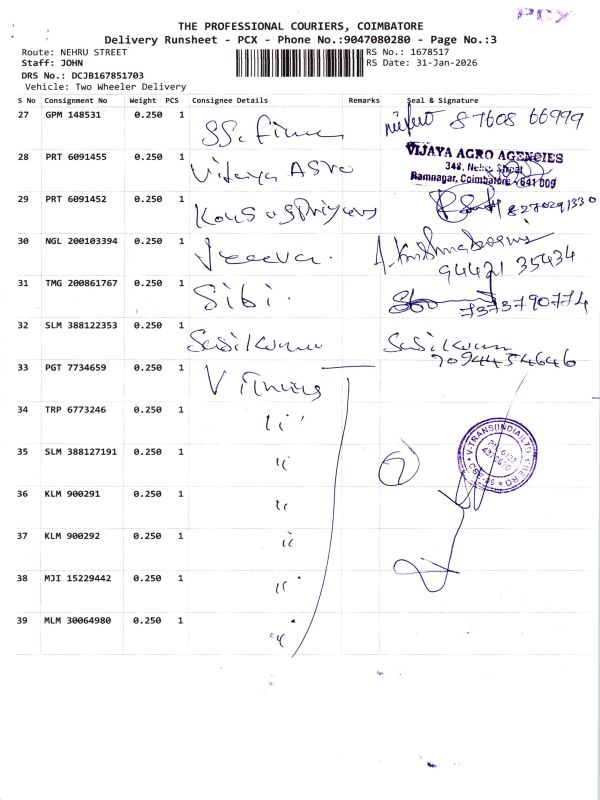 PCX
THE PROFESSIONAL COURIERS, COIMBATORE
Delivery Runsheet - PCX - Phone No.:9047080280 - Page No.:3
Route: NEHRU STREET
RS No.: 1678517
Staff: JOHN
RS Date: 31-Jan-2026
DRS No.: DCJB167851703
Vehicle: Two Wheeler Delivery
S No Consignment No Weight PCS Consignee Details Remarks Seal & Signature
27 GPM 148531 0.250 1 SS. 87608 66999
28 PRT 6091455 0.250 1 Vijaya Agro VIJAYA AGRO AGENCIES
348, Nehru Street
Ramnagar, Coimbatore - 641 009
29 PRT 6091452 0.250 1 8270291330
30 NGL 200103394 0.250 1 Jeeva. 94421 35434
31 TMG 200861767 0.250 1 Sibi. 7373790774
32 SLM 388122353 0.250 1 Sasikumar Sasikumar
7094454646
33 PGT 7734659 0.250 1
34 TRP 6773246 0.250 1 "
35 SLM 388127191 0.250 1 " 7 V-TRANS(INDIA)LTD
36 KLM 900291 0.250 1 "
37 KLM 900292 0.250 1 "
38 MJI 15229442 0.250 1 "
39 MLM 30064980 0.250 1 "